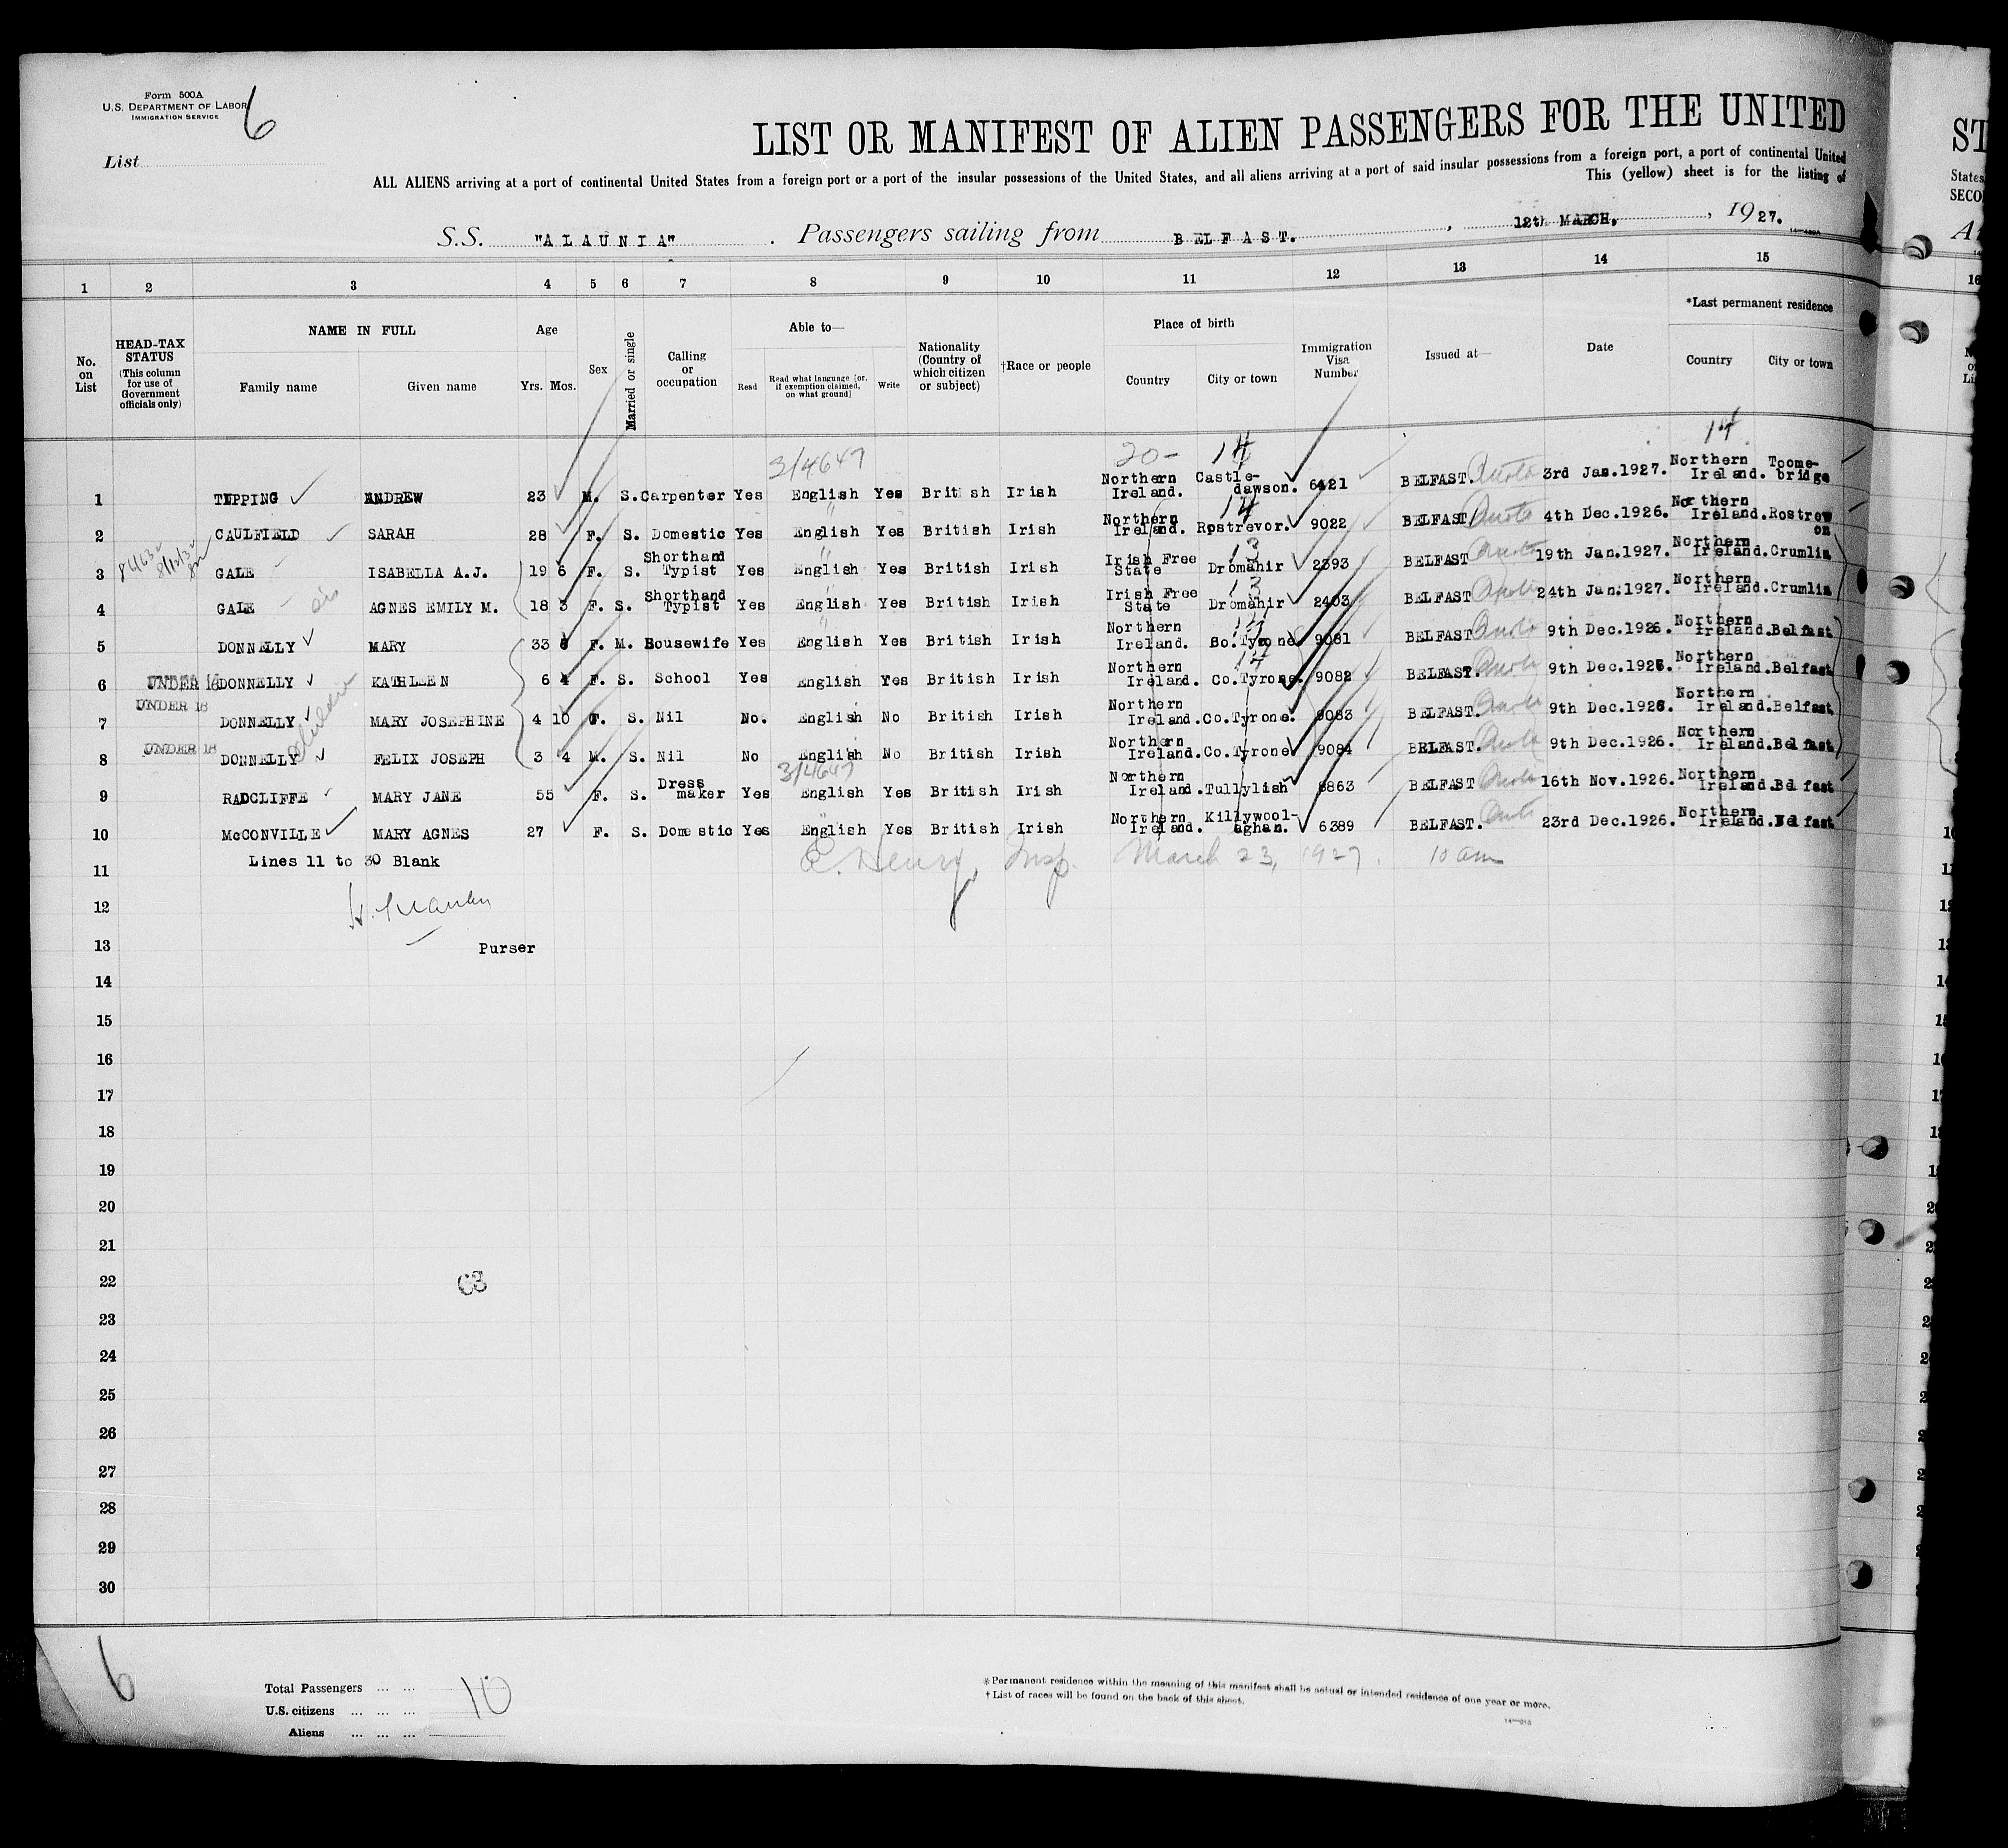 Form 500A
U.S. DEPARTMENT OF LABOR
IMMIGRATION SERVICE
6
List
LIST OR MANIFEST OF ALIEN PASSENGERS FOR THE UNITED
ST
ALL ALIENS arriving at a port of continental United States from a foreign port or a port of the insular possessions of the United States, and all aliens arriving at a port of said insular possessions from a foreign port, a port of continental United
States
This (yellow) sheet is for the listing of
SECO
S.S. "ALAUNIA" . Passengers sailing from BELFAST. , 12th MARCH, , 1927.
1 2 3 4 5 6 7 8 9 10 11 12 13 14 15 16
No. on List
HEAD-TAX STATUS (This column for use of Government officials only)
NAME IN FULL
Family name Given name
Age
Yrs. Mos.
Sex
Married or single
Calling or occupation
Able to—
Read Read what language [or, if exemption claimed, on what ground] Write
Nationality (Country of which citizen or subject)
†Race or people
Place of birth
Country City or town
Immigration Visa Number
Issued at—
Date
*Last permanent residence
Country City or town
3/4647 20- 14 14
1 TOPPING ANDREW 23 M. S. Carpenter Yes English Yes British Irish Northern Ireland. Castle-dawson. 6421 BELFAST. Quota 3rd Jan.1927. Northern Ireland. Toome-bridge
14
2 CAULFIELD SARAH 28 F. S. Domestic Yes English Yes British Irish Northern Ireland. Rostrevor. 9022 BELFAST Quota 4th Dec.1926. Northern Ireland. Rostrevor
13
3 GALE ISABELLA A.J. 19 6 F. S. Shorthand Typist Yes English Yes British Irish Irish Free State Dromahir 2393 BELFAST Quota 19th Jan.1927. Northern Ireland. Crumlin
13
4 GALE AGNES EMILY M. 18 3 F. S. Shorthand Typist Yes English Yes British Irish Irish Free State Dromahir 2403 BELFAST Quota 24th Jan.1927. Northern Ireland. Crumlin
14
5 DONNELLY MARY 33 F. M. Housewife Yes English Yes British Irish Northern Ireland. Co.Tyrone 9081 BELFAST Quota 9th Dec.1926. Northern Ireland. Belfast
14
6 UNDER 16 DONNELLY KATHLEEN 6 4 F. S. School Yes English Yes British Irish Northern Ireland. Co.Tyrone. 9082 BELFAST. Quota 9th Dec.1926. Northern Ireland. Belfast
7 UNDER 16 DONNELLY MARY JOSEPHINE 4 10 F. S. Nil No. English No British Irish Northern Ireland. Co.Tyrone. 9083 BELFAST. Quota 9th Dec.1926. Northern Ireland. Belfast
8 UNDER 16 DONNELLY FELIX JOSEPH 3 4 M. S. Nil No English No British Irish Northern Ireland. Co.Tyrone 9084 BELFAST. Quota 9th Dec.1926. Northern Ireland. Belfast
3/4647
9 RADCLIFFE MARY JANE 55 F. S. Dress maker Yes English Yes British Irish Northern Ireland. Tullylish 8863 BELFAST Quota 16th Nov.1926. Northern Ireland. Belfast
10 McCONVILLE MARY AGNES 27 F. S. Domestic Yes English Yes British Irish Northern Ireland. Killywool-aghan. 6389 BELFAST. Quota 23rd Dec.1926. Northern Ireland. Belfast
11 Lines 11 to 30 Blank E. Henry, Insp. March 23, 1927. 10 am
12
13 Purser
14
15
16
17
18
19
20
21
22 63
23
24
25
26
27
28
29
30
6
Total Passengers ... ... 10
U.S. citizens ... ... ...
Aliens ... ... ...
* Permanent residence within the meaning of this manifest shall be actual or intended residence of one year or more.
† List of races will be found on the back of this sheet.